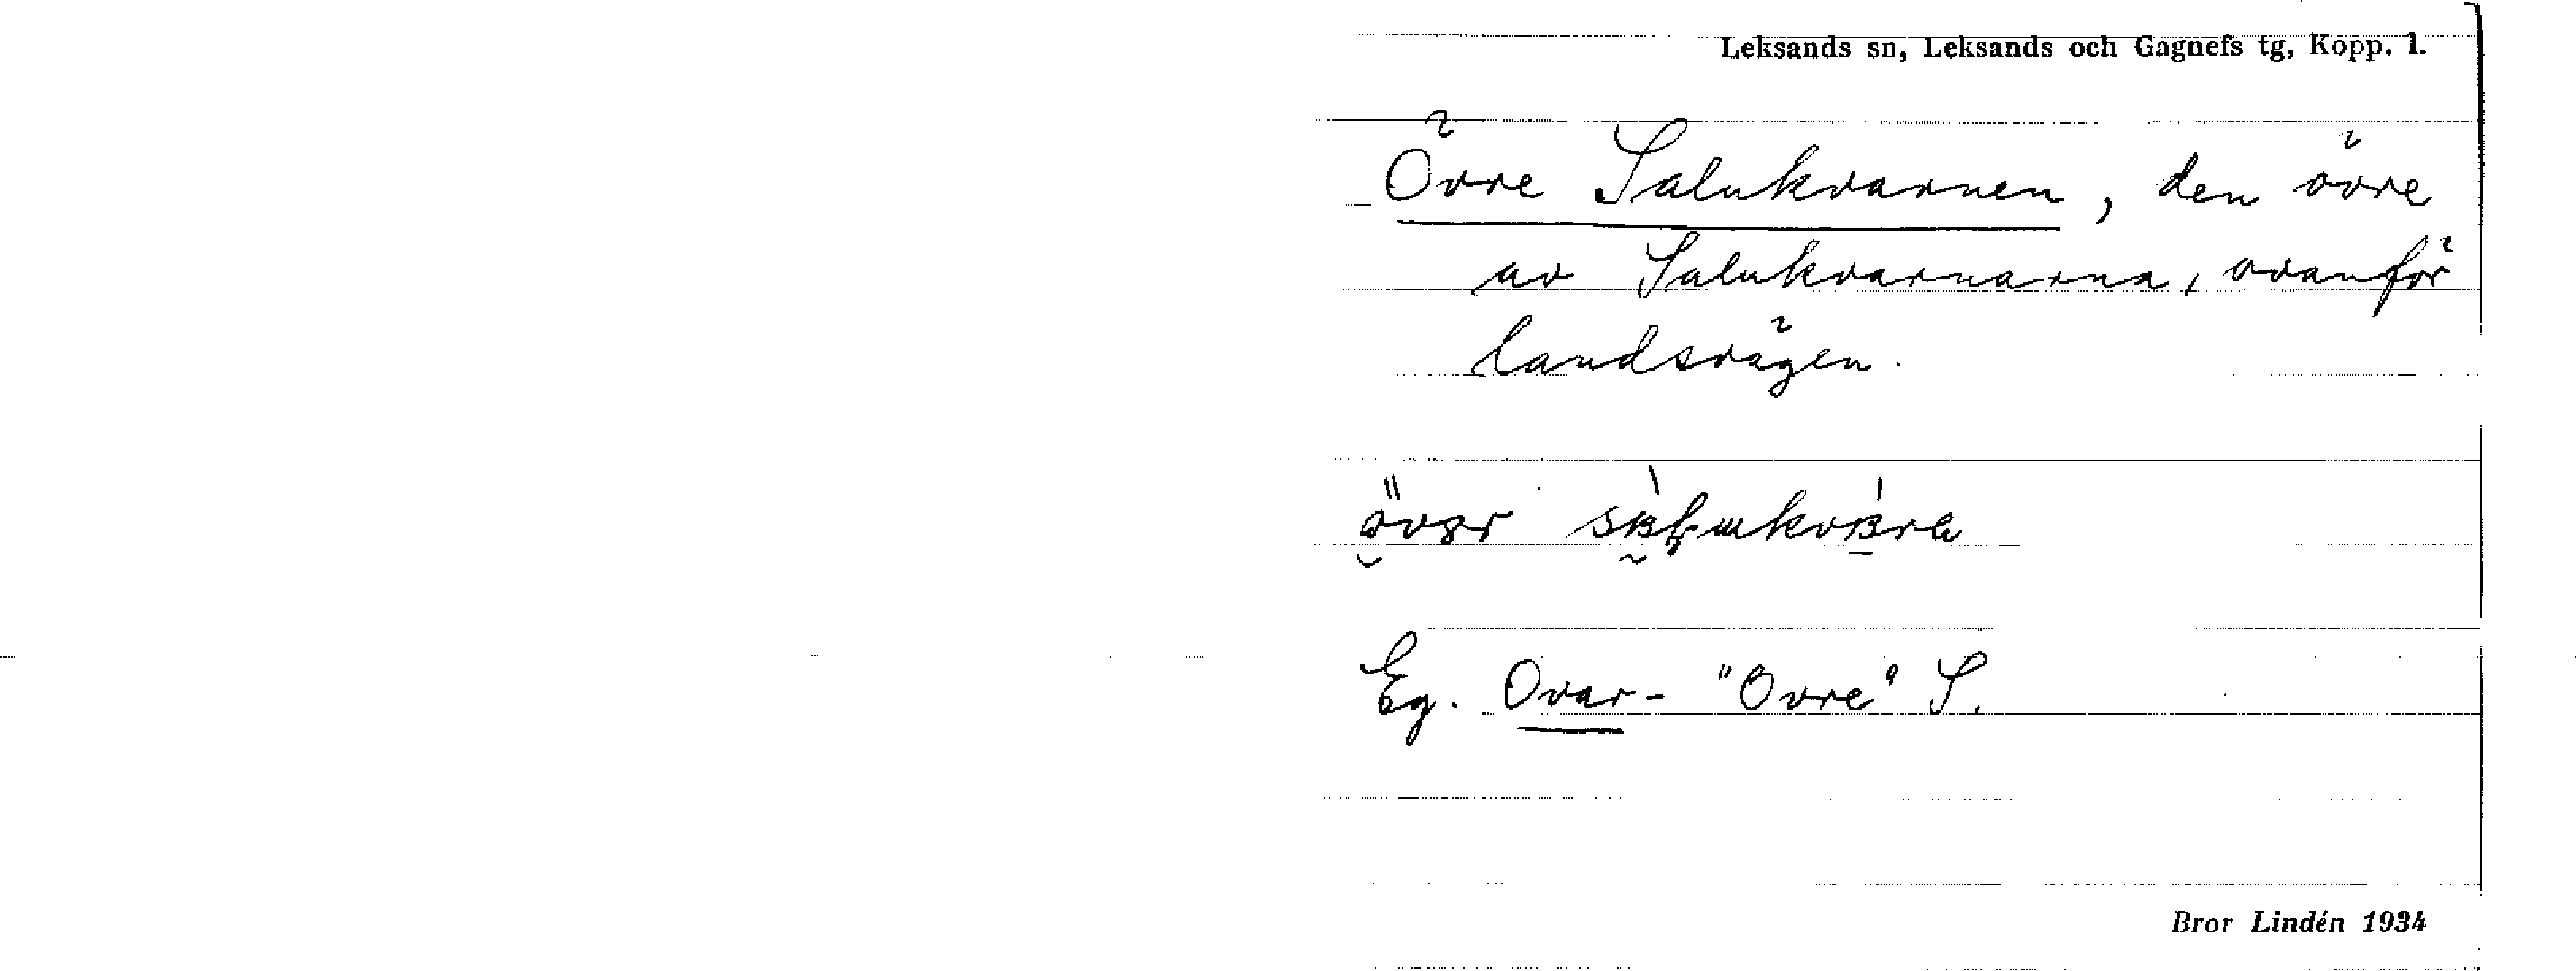 Leksands sn, Leksands och Gagnefs tg, Kopp. l.
Övre Salukvarnen, den övre
av Salukvarnarna, ovanför
landsvägen.
Eg. Ovar- "Övre" S.
Bror Lindén 1934